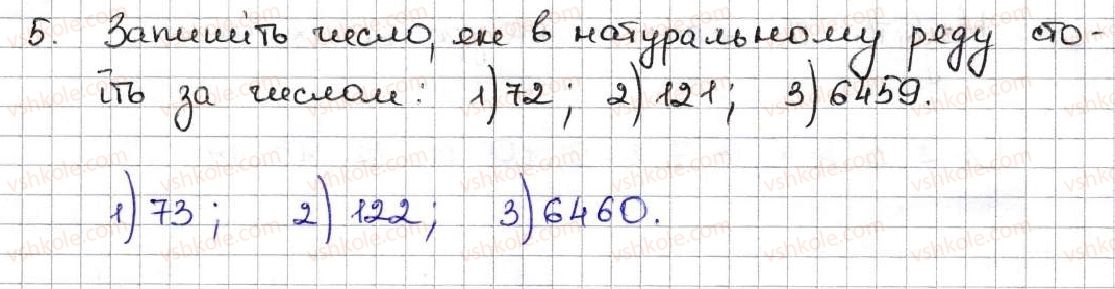 5. Запишіть число, яке в натуральному ряду сто-
їть за числом: 1) 72; 2) 121; 3) 6459.
1) 73; 2) 122; 3) 6460.